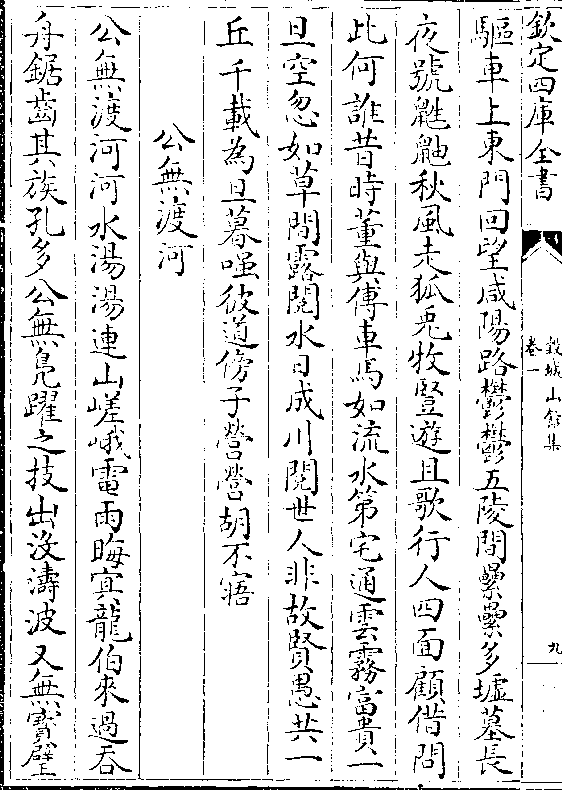 欽定四庫全書
穀城山館集
卷一
九
驅車上東門回望咸陽路鬱鬱五陵間纍纍多墟墓長
夜號鼪鼬秋風走狐兎牧豎遊且歌行人四面顧借問
此何誰昔時董與傅車馬如流水第宅通雲霧富貴一
旦空忽如草間露閱水日成川閱世人非故賢愚共一
丘千載為旦暮嗤彼道傍子營營胡不寤
公無渡河
公無渡河河水湯湯連山嵯峨電雨晦寅龍伯來過吞
舟鋸齒其族孔多公無鳧躍之技出沒濤波又無寳璧